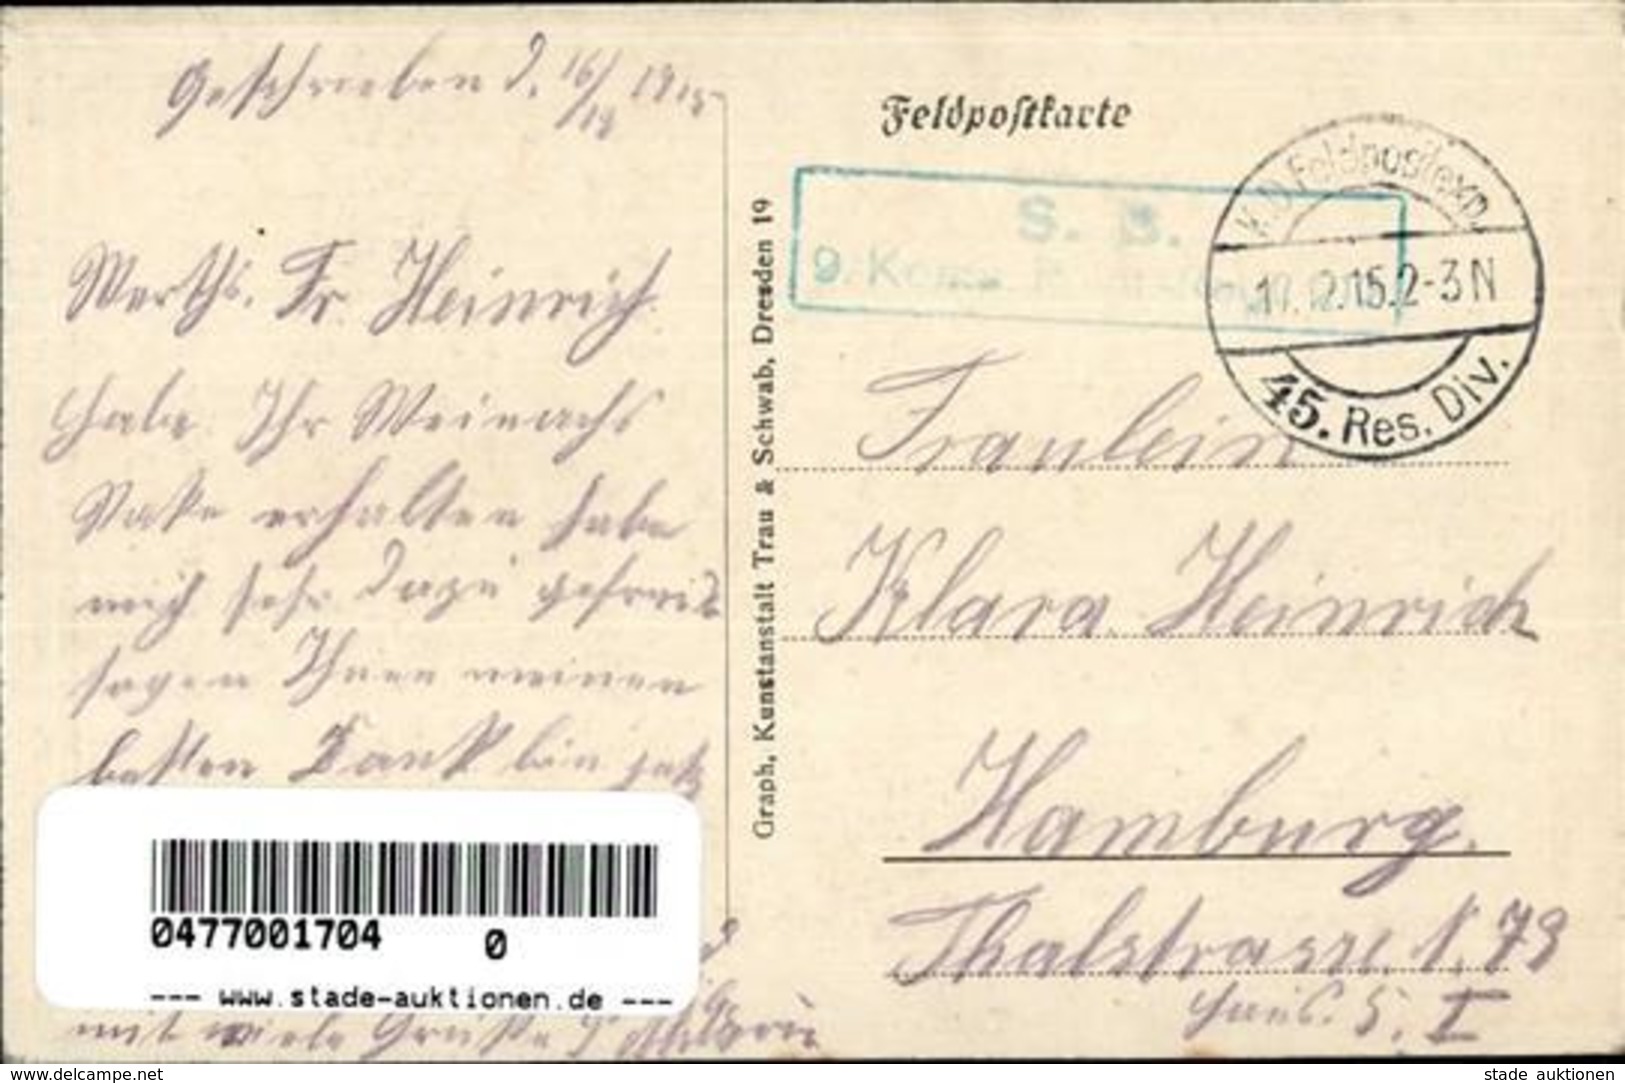 Geschrieben d. 16/12 1915
Werths. Fr. Heinrich.
Habe Ihr Weinachs
Pake erhalten habe
mich sehr dazu gefreit
sagen Ihnen meinen
besten Dank bin jetz
mit viele Grüße
Graph. Kunstanstalt Trau & Schwab, Dresden 19
Feldpostkarte
S. B.
9. Komp.
K. D. Feldpostexp.
17.12.15.2-3N
45. Res. Div.
Fraulein
Klara Heinrich
Hamburg.
Thalstrasse N. 79
Haus. 5. I
0477001704 0
--- www.stade-auktionen.de ---
www.delcampe.net
stade auktionen